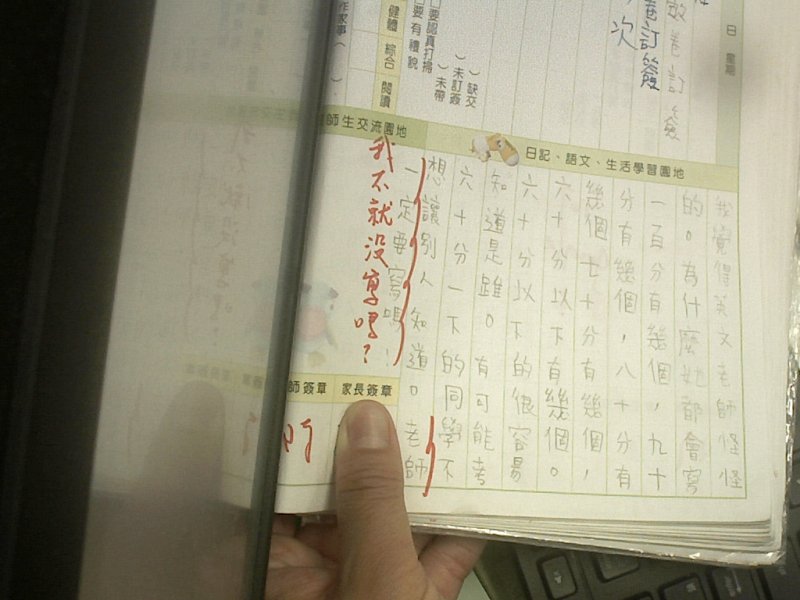 日 星期
訂簽
卷訂簽
次
缺交
未訂簽
未帶
要認真打掃
要有禮貌
健體 綜合 閱讀
作家事
師生交流園地
日記、語文、生活學習園地
我覺得英文老師怪怪
的。為什麼她都會寫
一百分有幾個，九十
分有幾個，八十分有
幾個七十分有幾個，
六十分以下有幾個。
六十分以下的很容易
知道是雖。有可能考
六十分一下的同學不
想讓別人知道。老師
一定要寫嗎！
我不就沒寫嗎？
師簽章
家長簽章